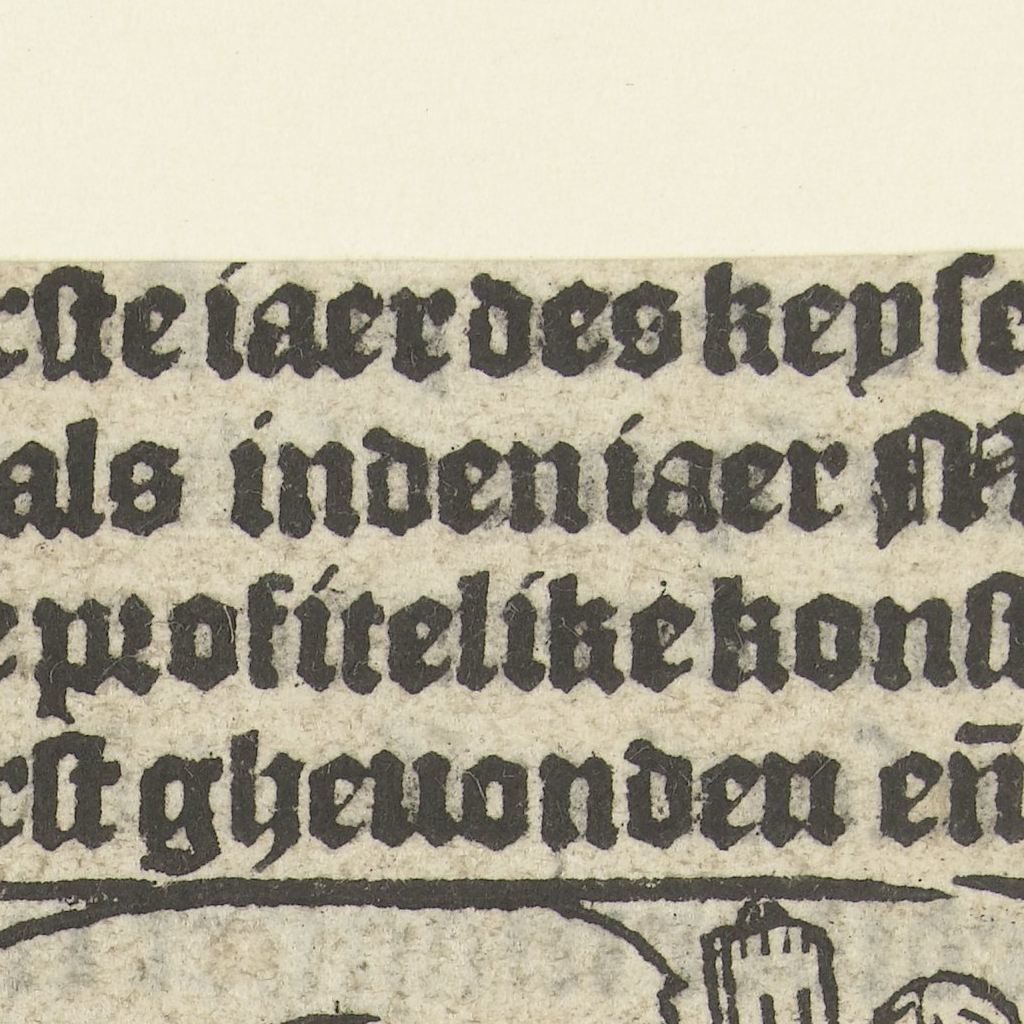 rste iaer des keyse
als inden iaer M
e profitelike konst
rst gheuonden en̄